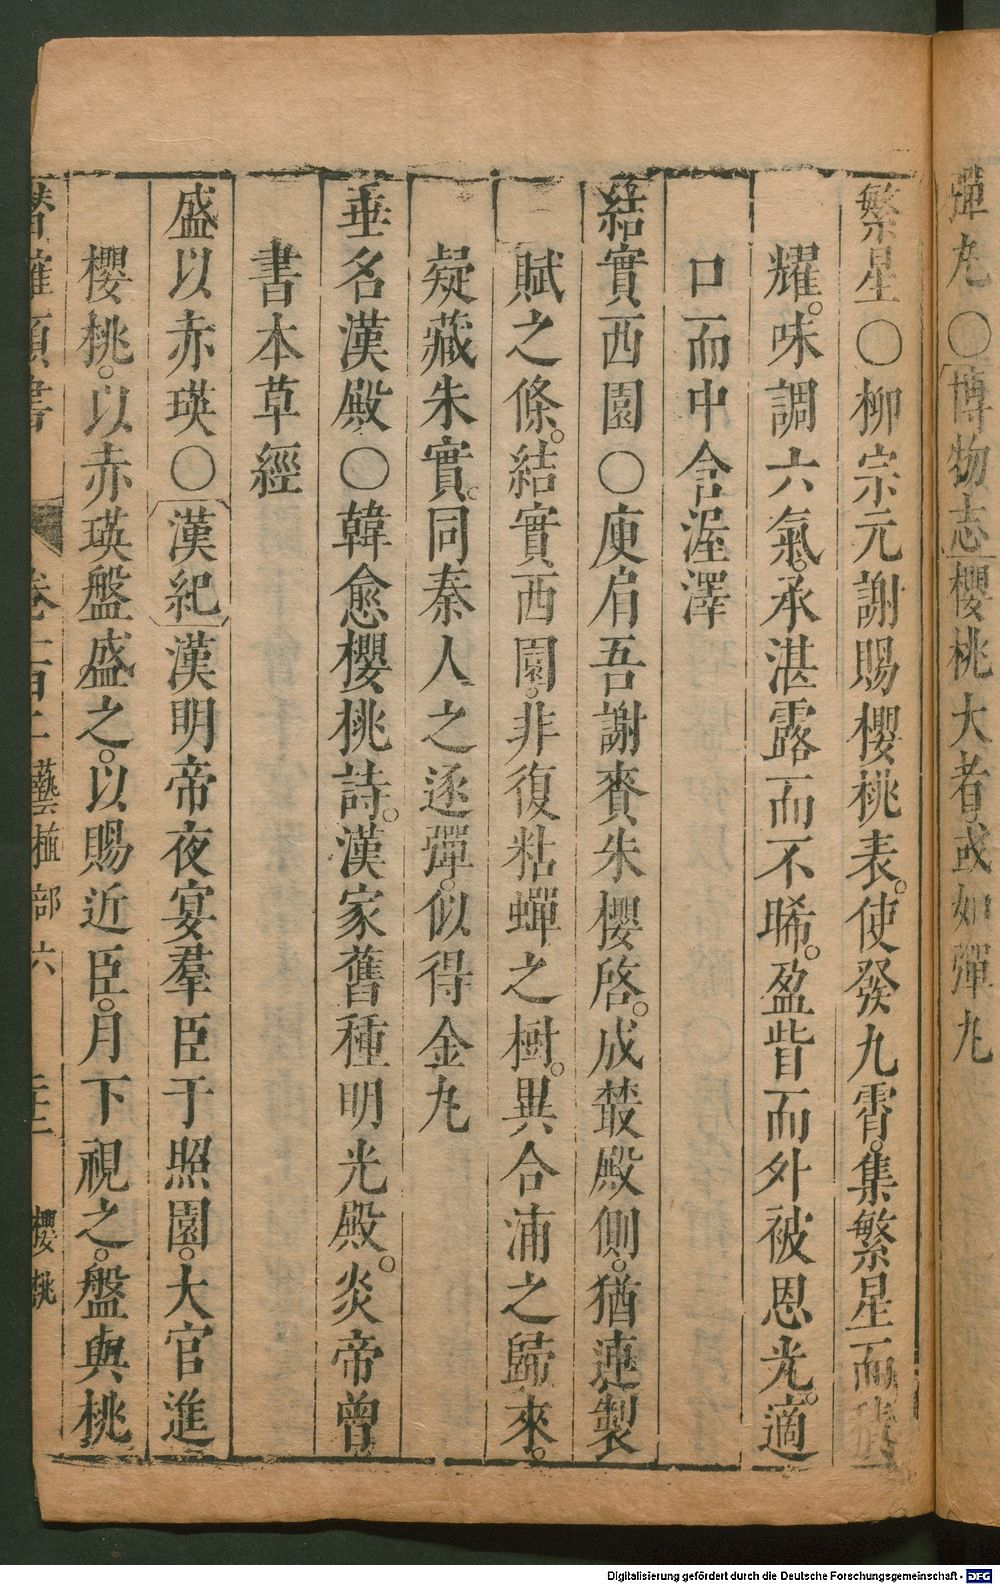 彈丸〇博物志櫻桃大者或如彈丸
繁星〇柳宗元謝賜櫻桃表。使發九霄。集繁星而積
耀。味調六氣。承湛露而不晞。盈眥而外被恩光。適
口而中含渥澤
結實西園〇庾肩吾謝賚朱櫻啓。成叢殿側。猶連製
賦之條。結實西園。非復粘蟬之樹。異合浦之歸來。
疑藏朱實。同秦人之逐彈。似得金丸
垂名漢殿〇韓愈櫻桃詩。漢家舊種明光殿。炎帝曾
書本草經
盛以赤瑛〇漢紀漢明帝夜宴羣臣于照園。大官進
櫻桃。以赤瑛盤盛之。以賜近臣。月下視之。盤與桃
潛確類書 卷一百二 藝植部六 櫻桃
Digitalisierung gefördert durch die Deutsche Forschungsgemeinschaft - DFG